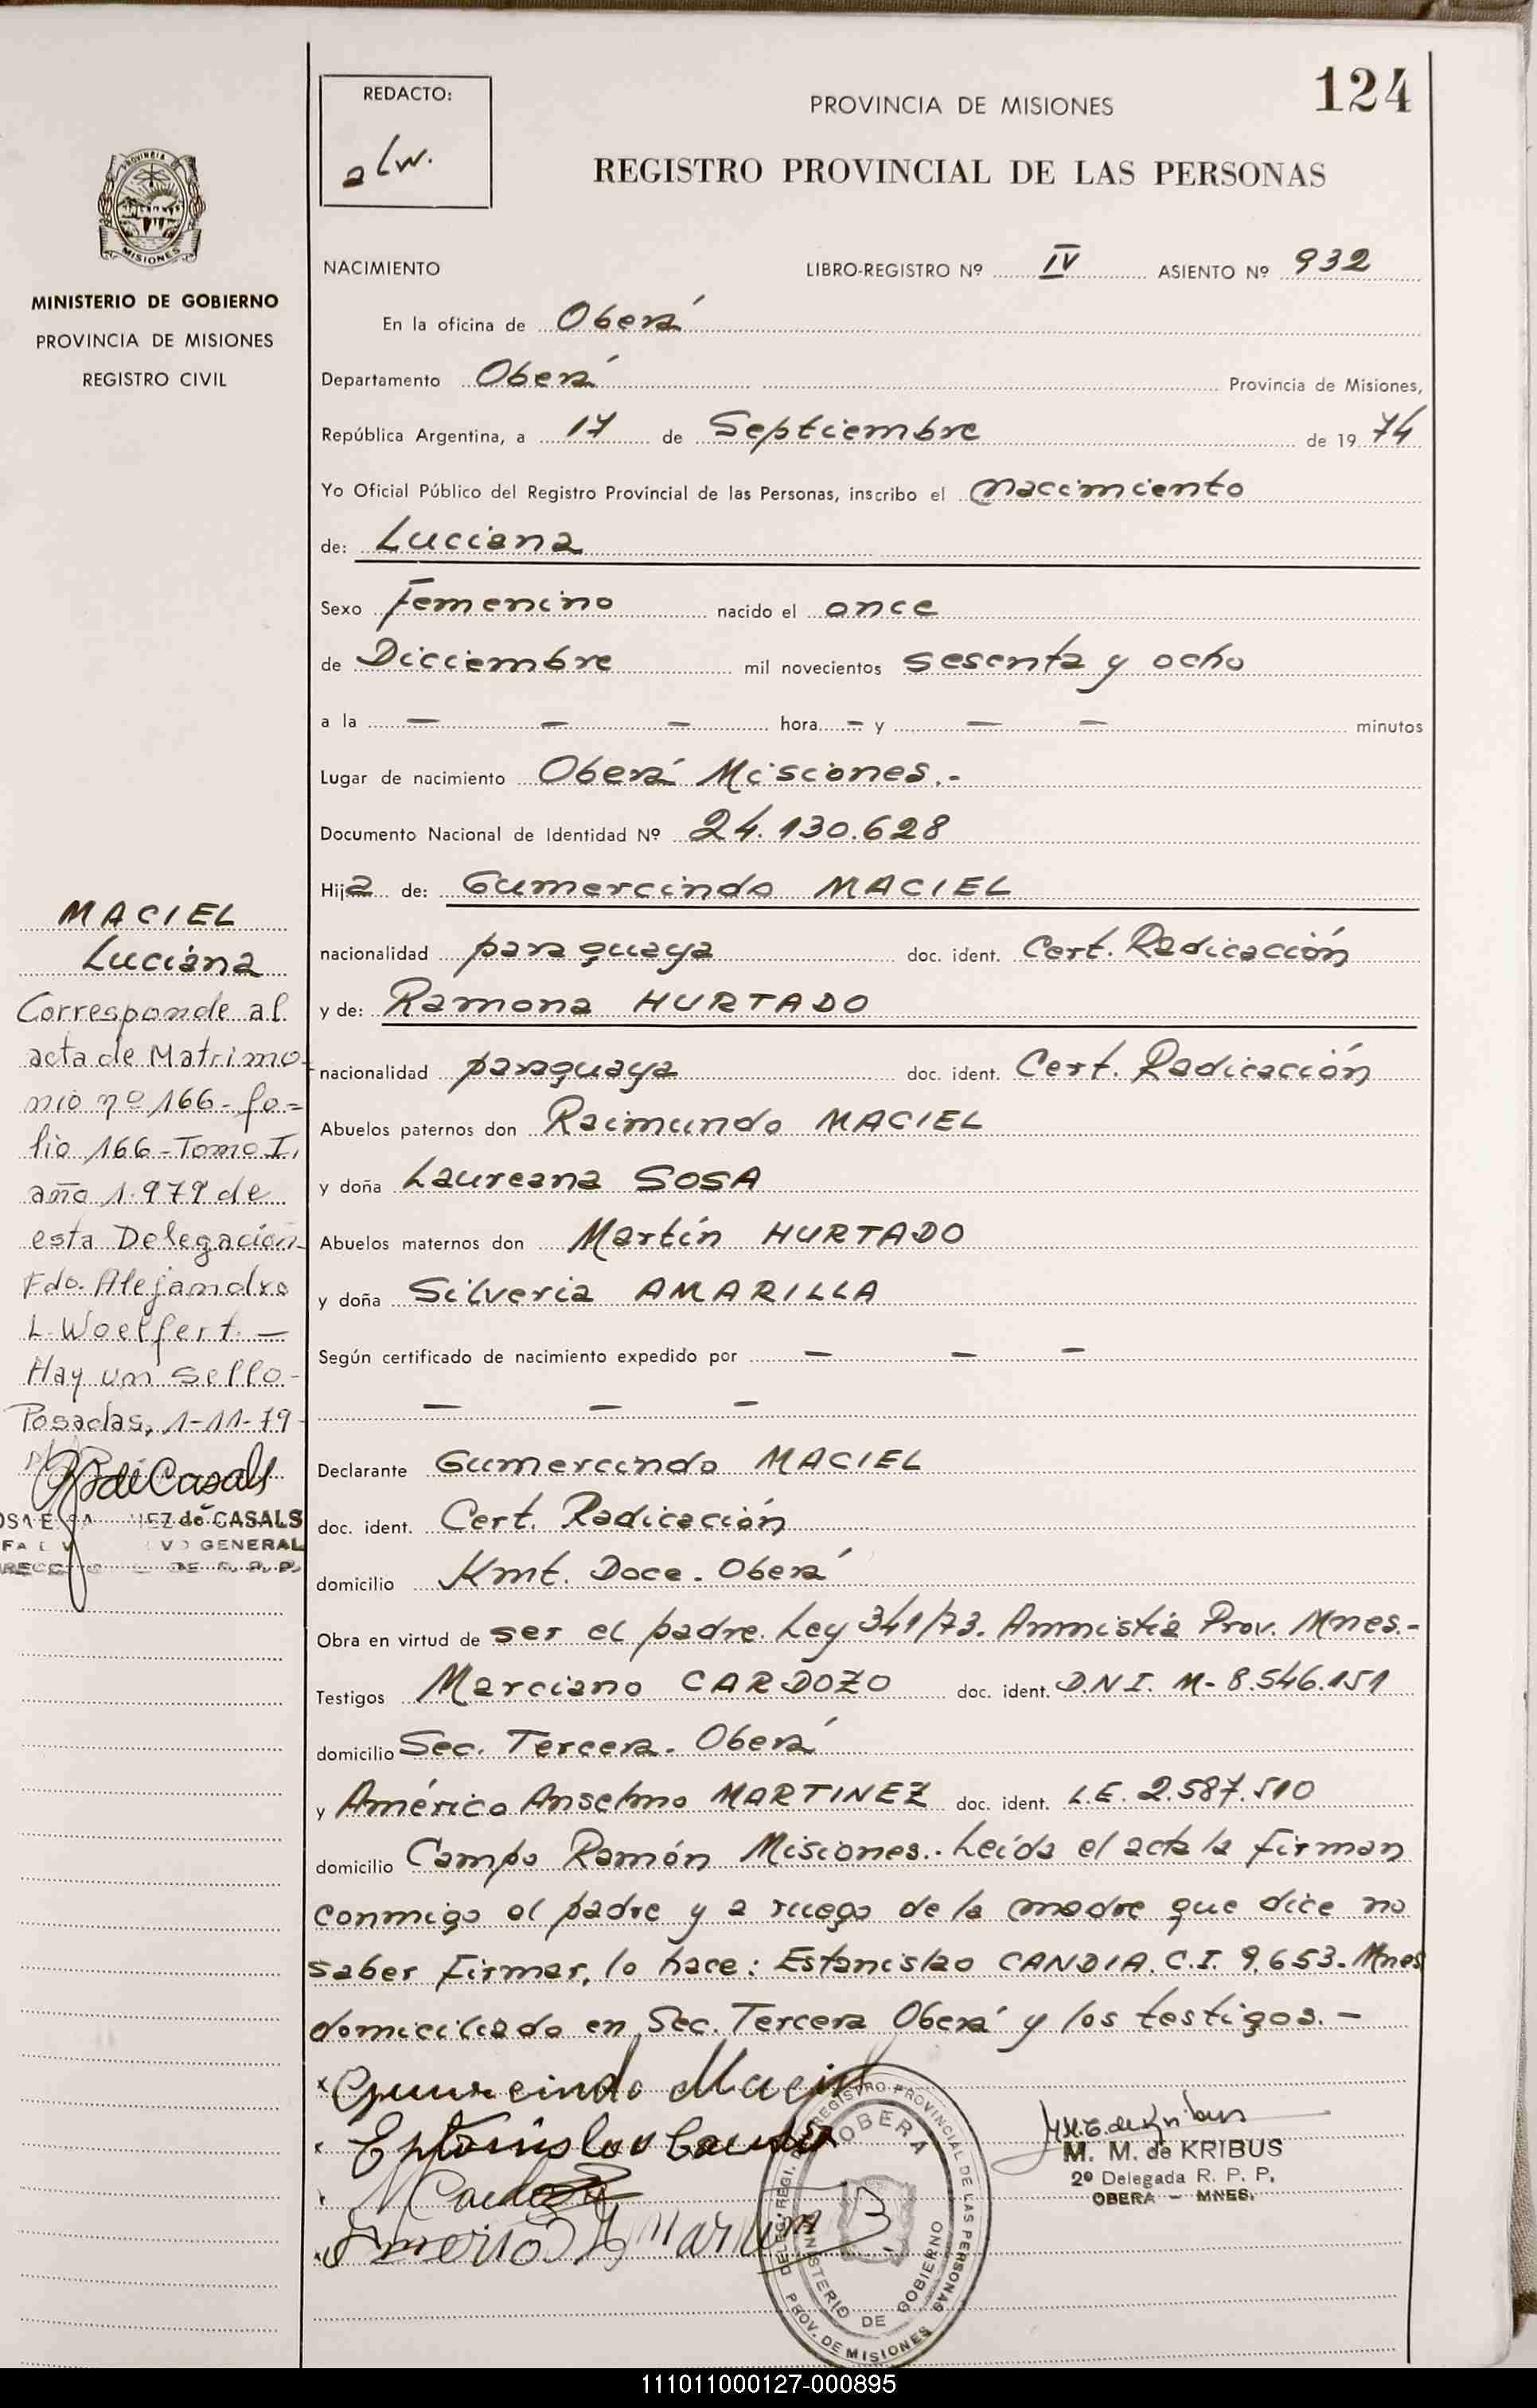 124
REDACTO:
alw.
PROVINCIA DE MISIONES
REGISTRO PROVINCIAL DE LAS PERSONAS
PROVINCIA
MISIONES
MINISTERIO DE GOBIERNO
PROVINCIA DE MISIONES
REGISTRO CIVIL
NACIMIENTO LIBRO-REGISTRO Nº IV ASIENTO Nº 932
En la oficina de Oberá
Departamento Oberá Provincia de Misiones,
República Argentina, a 17 de Septiembre de 1974
Yo Oficial Público del Registro Provincial de las Personas, inscribo el nacimiento
de: Luciana
Sexo Femenino nacido el once
de Diciembre mil novecientos sesenta y ocho
a la — — — hora — y — — minutos
Lugar de nacimiento Oberá Misiones.-
Documento Nacional de Identidad Nº 24.130.628
Hija de: Gumercindo MACIEL
nacionalidad paraguaya doc. ident. Cert. Radicación
y de: Ramona HURTADO
nacionalidad paraguaya doc. ident. Cert. Radicación
Abuelos paternos don Raimundo MACIEL
y doña Laureana SOSA
Abuelos maternos don Martín HURTADO
y doña Silveria AMARILLA
Según certificado de nacimiento expedido por — — —
— — —
Declarante Gumercindo MACIEL
doc. ident. Cert. Radicación
domicilio Kmt. Doce. Oberá
Obra en virtud de ser el padre. Ley 341/73. Amnistía Prov. Mnes.-
Testigos Marciano CARDOZO doc. ident. D.N.I. M- 8.546.151
domicilio Sec. Tercera. Oberá
y América Anselmo MARTINEZ doc. ident. L.E. 2.587.510
domicilio Campo Ramón Misiones.. Leída el acta la firman
conmigo el padre y a ruego de la madre que dice no
saber firmar, lo hace: Estanislao CANDIA. C.I. 9.653. Mnes
domiciliado en Sec. Tercera Oberá y los testigos.—
MACIEL
Luciana
Corresponde al
acta de Matrimo-
nio nº 166- fo=
lio 166-Tomo I,
año 1.979 de
esta Delegación
Fdo. Alejandro
L. Woelfert.—
Hay un sello-
Posadas, 1-11-79-
de Casals
de CASALS
GENERAL
DE R. P. P.
Gumercindo Maciel
Estanislao Candia
M. M. de Kribus
M. M. de KRIBUS
2º Delegada R. P. P.
OBERA - MNES.
REGISTRO PROVINCIAL DE LAS PERSONAS
OBERA
MINISTERIO DE GOBIERNO
PROV. DE MISIONES
111011000127-000895